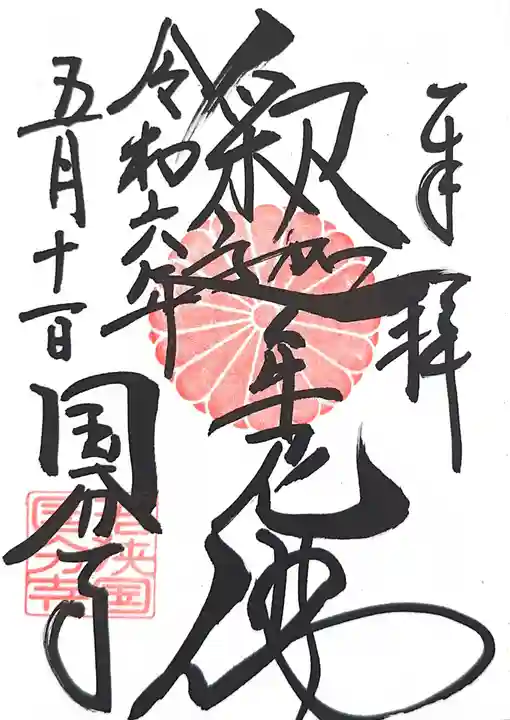 奉拝
釈迦牟尼佛
令和六年
五月十一日
国分寺
若狭国
国分寺